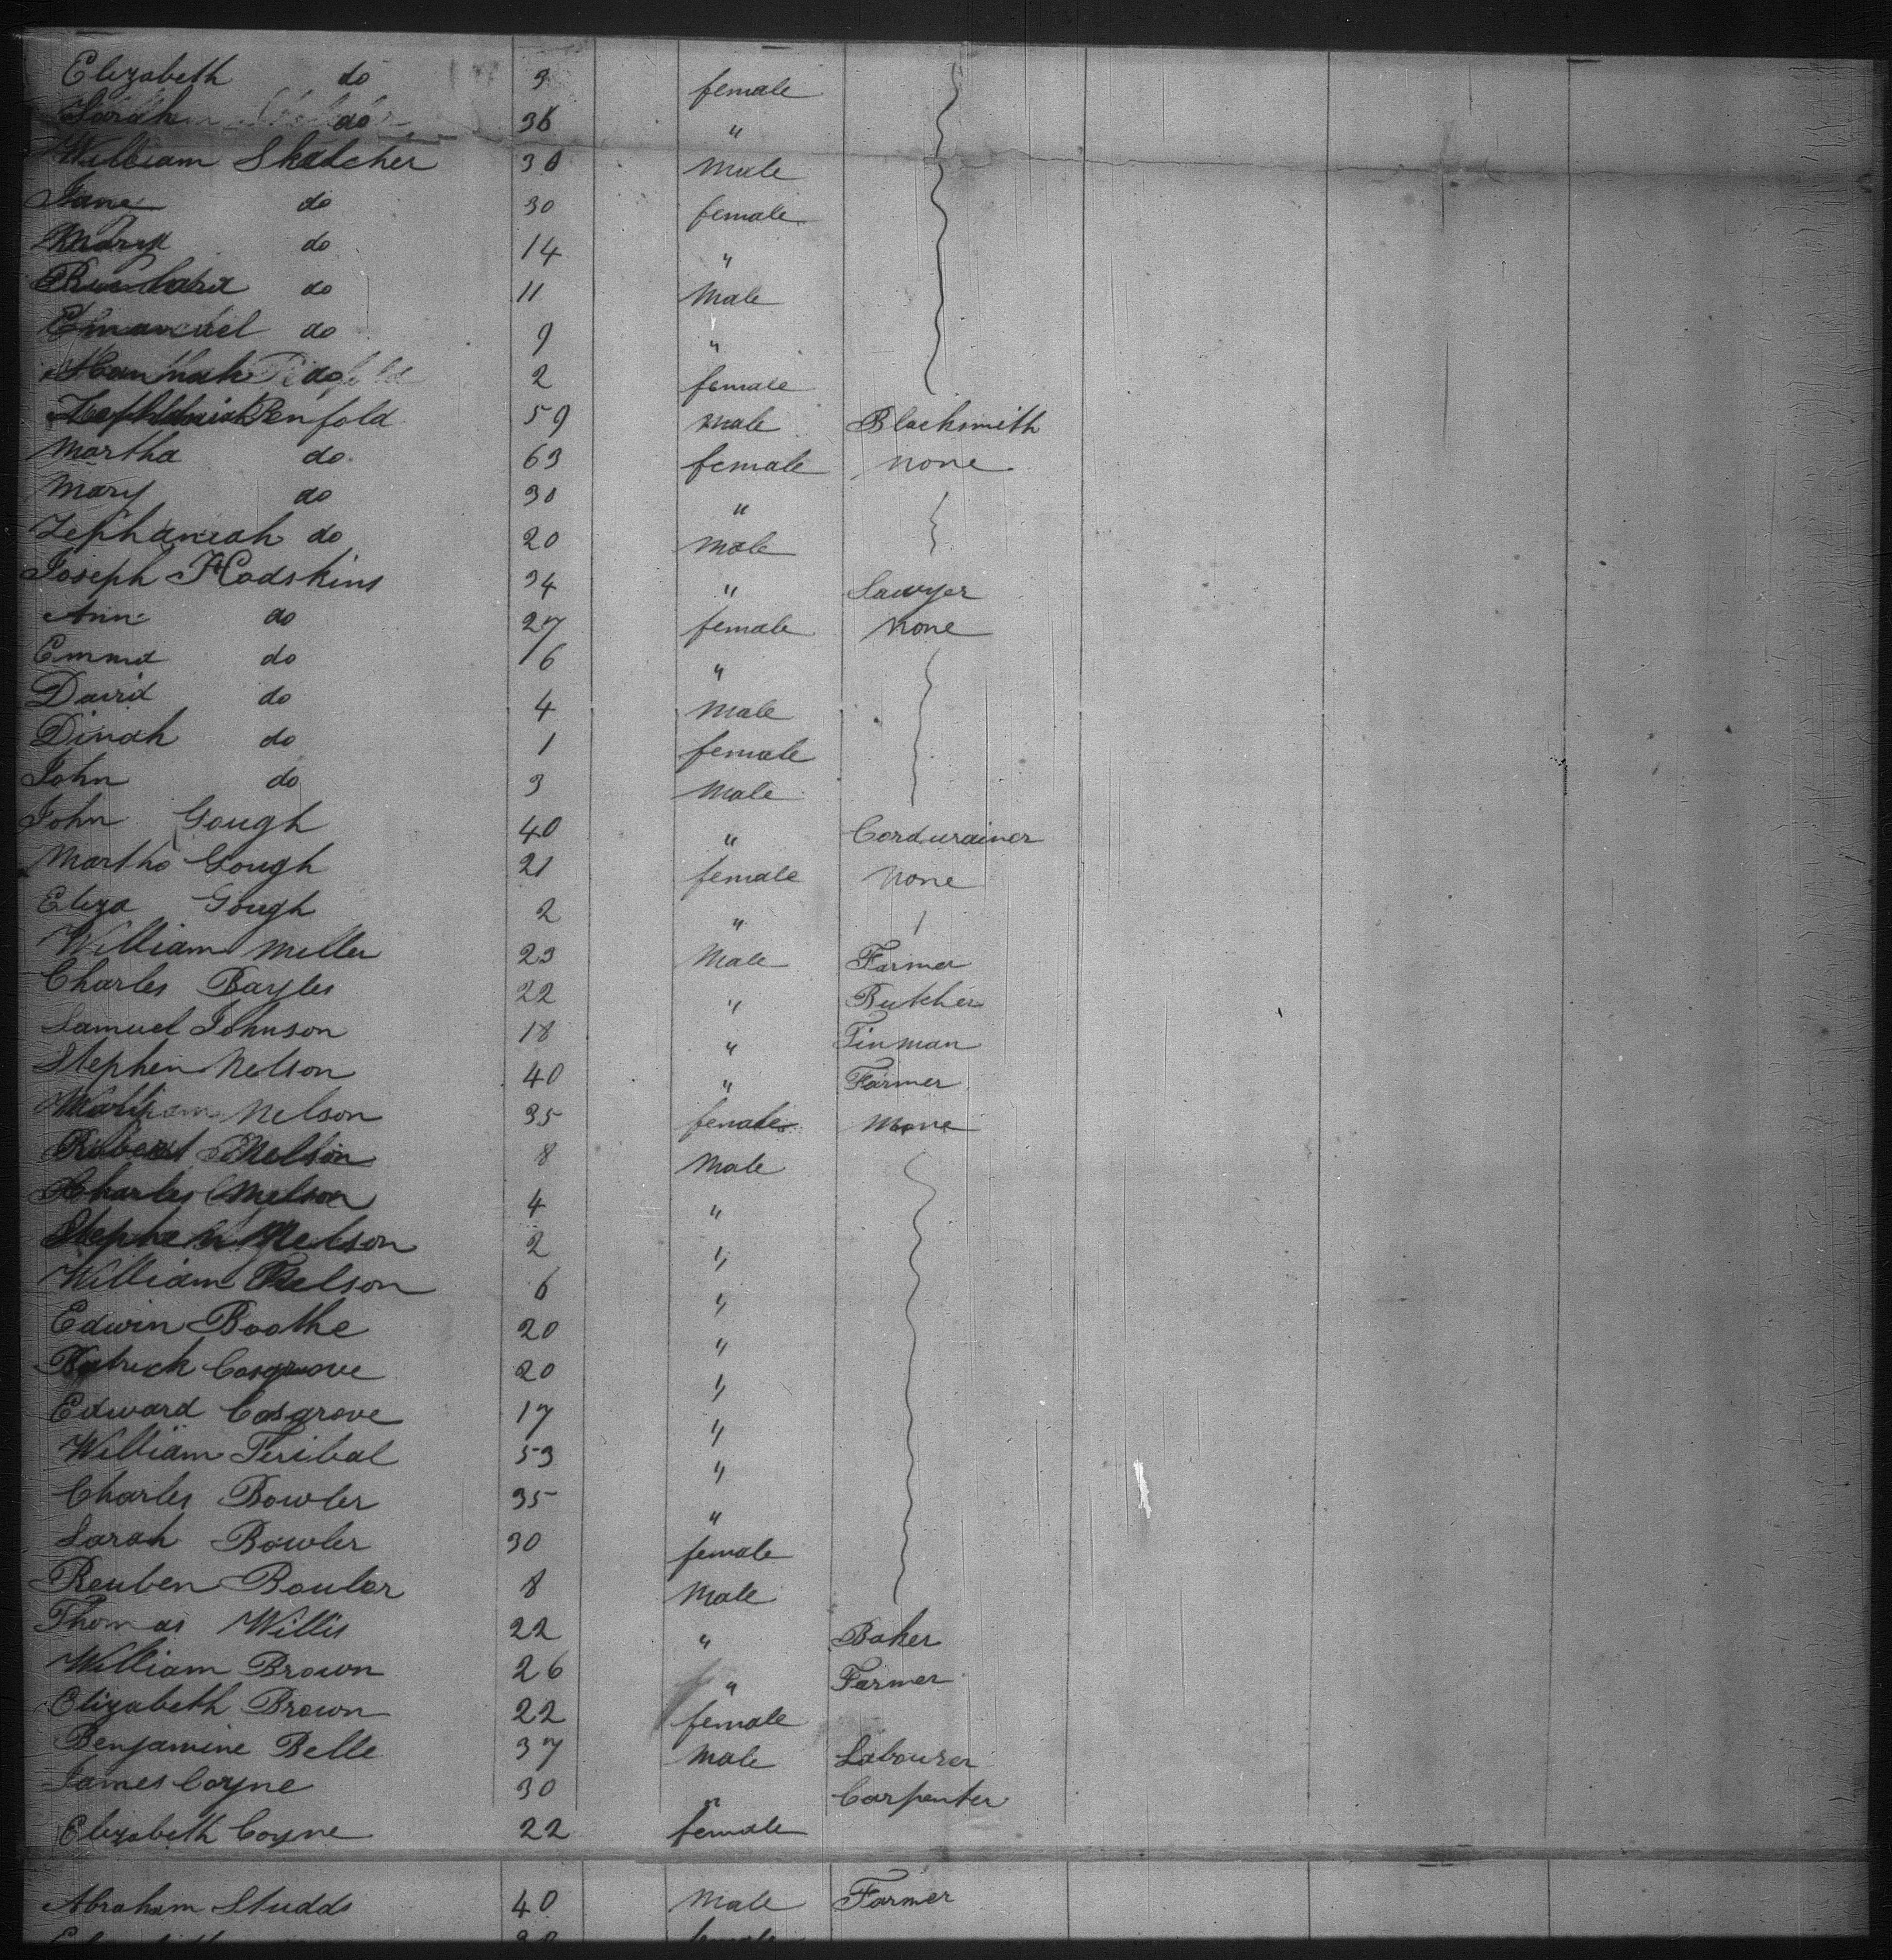 Elizabeth do 9 female
Sarah do 36 "
William Skelcher 30 Male
Jane do 30 female
Mary do 14 "
Richard do 11 Male
Emanuel do 9 "
Hannah do 2 female
Zephaniah Penfold 59 Male Blacksmith
Martha do 63 female none
Mary do 30 "
Zephaniah do 20 Male
Joseph Hodskins 34 " Sawyer
Ann do 27 female none
Emma do 6 "
David do 4 Male
Dinah do 1 female
John do 3 Male
John Gough 40 " Cordwainer
Martha Gough 21 female none
Eliza Gough 2 "
William Miller 23 Male Farmer
Charles Bayles 22 " Butcher
Samuel Johnson 18 " Tinman
Stephen Nelson 40 " Farmer
Nelson 35 female None
Robert Nelson 8 Male
Charles Nelson 4 "
Stephen Nelson 2 "
William Nelson 6 "
Edwin Boothe 20 "
Patrick Cosgrove 20 "
Edward Cosgrove 17 "
William Teribal 53 "
Charles Bowler 35 "
Sarah Bowler 30 female
Reuben Bouler 8 Male
Thomas Willis 22 " Baker
William Brown 26 " Farmer
Elizabeth Brown 22 female
Benjamine Belle 37 Male Labourer
James Coyne 30 " Carpenter
Elizabeth Coyne 22 female
Abraham Studds 40 Male Farmer